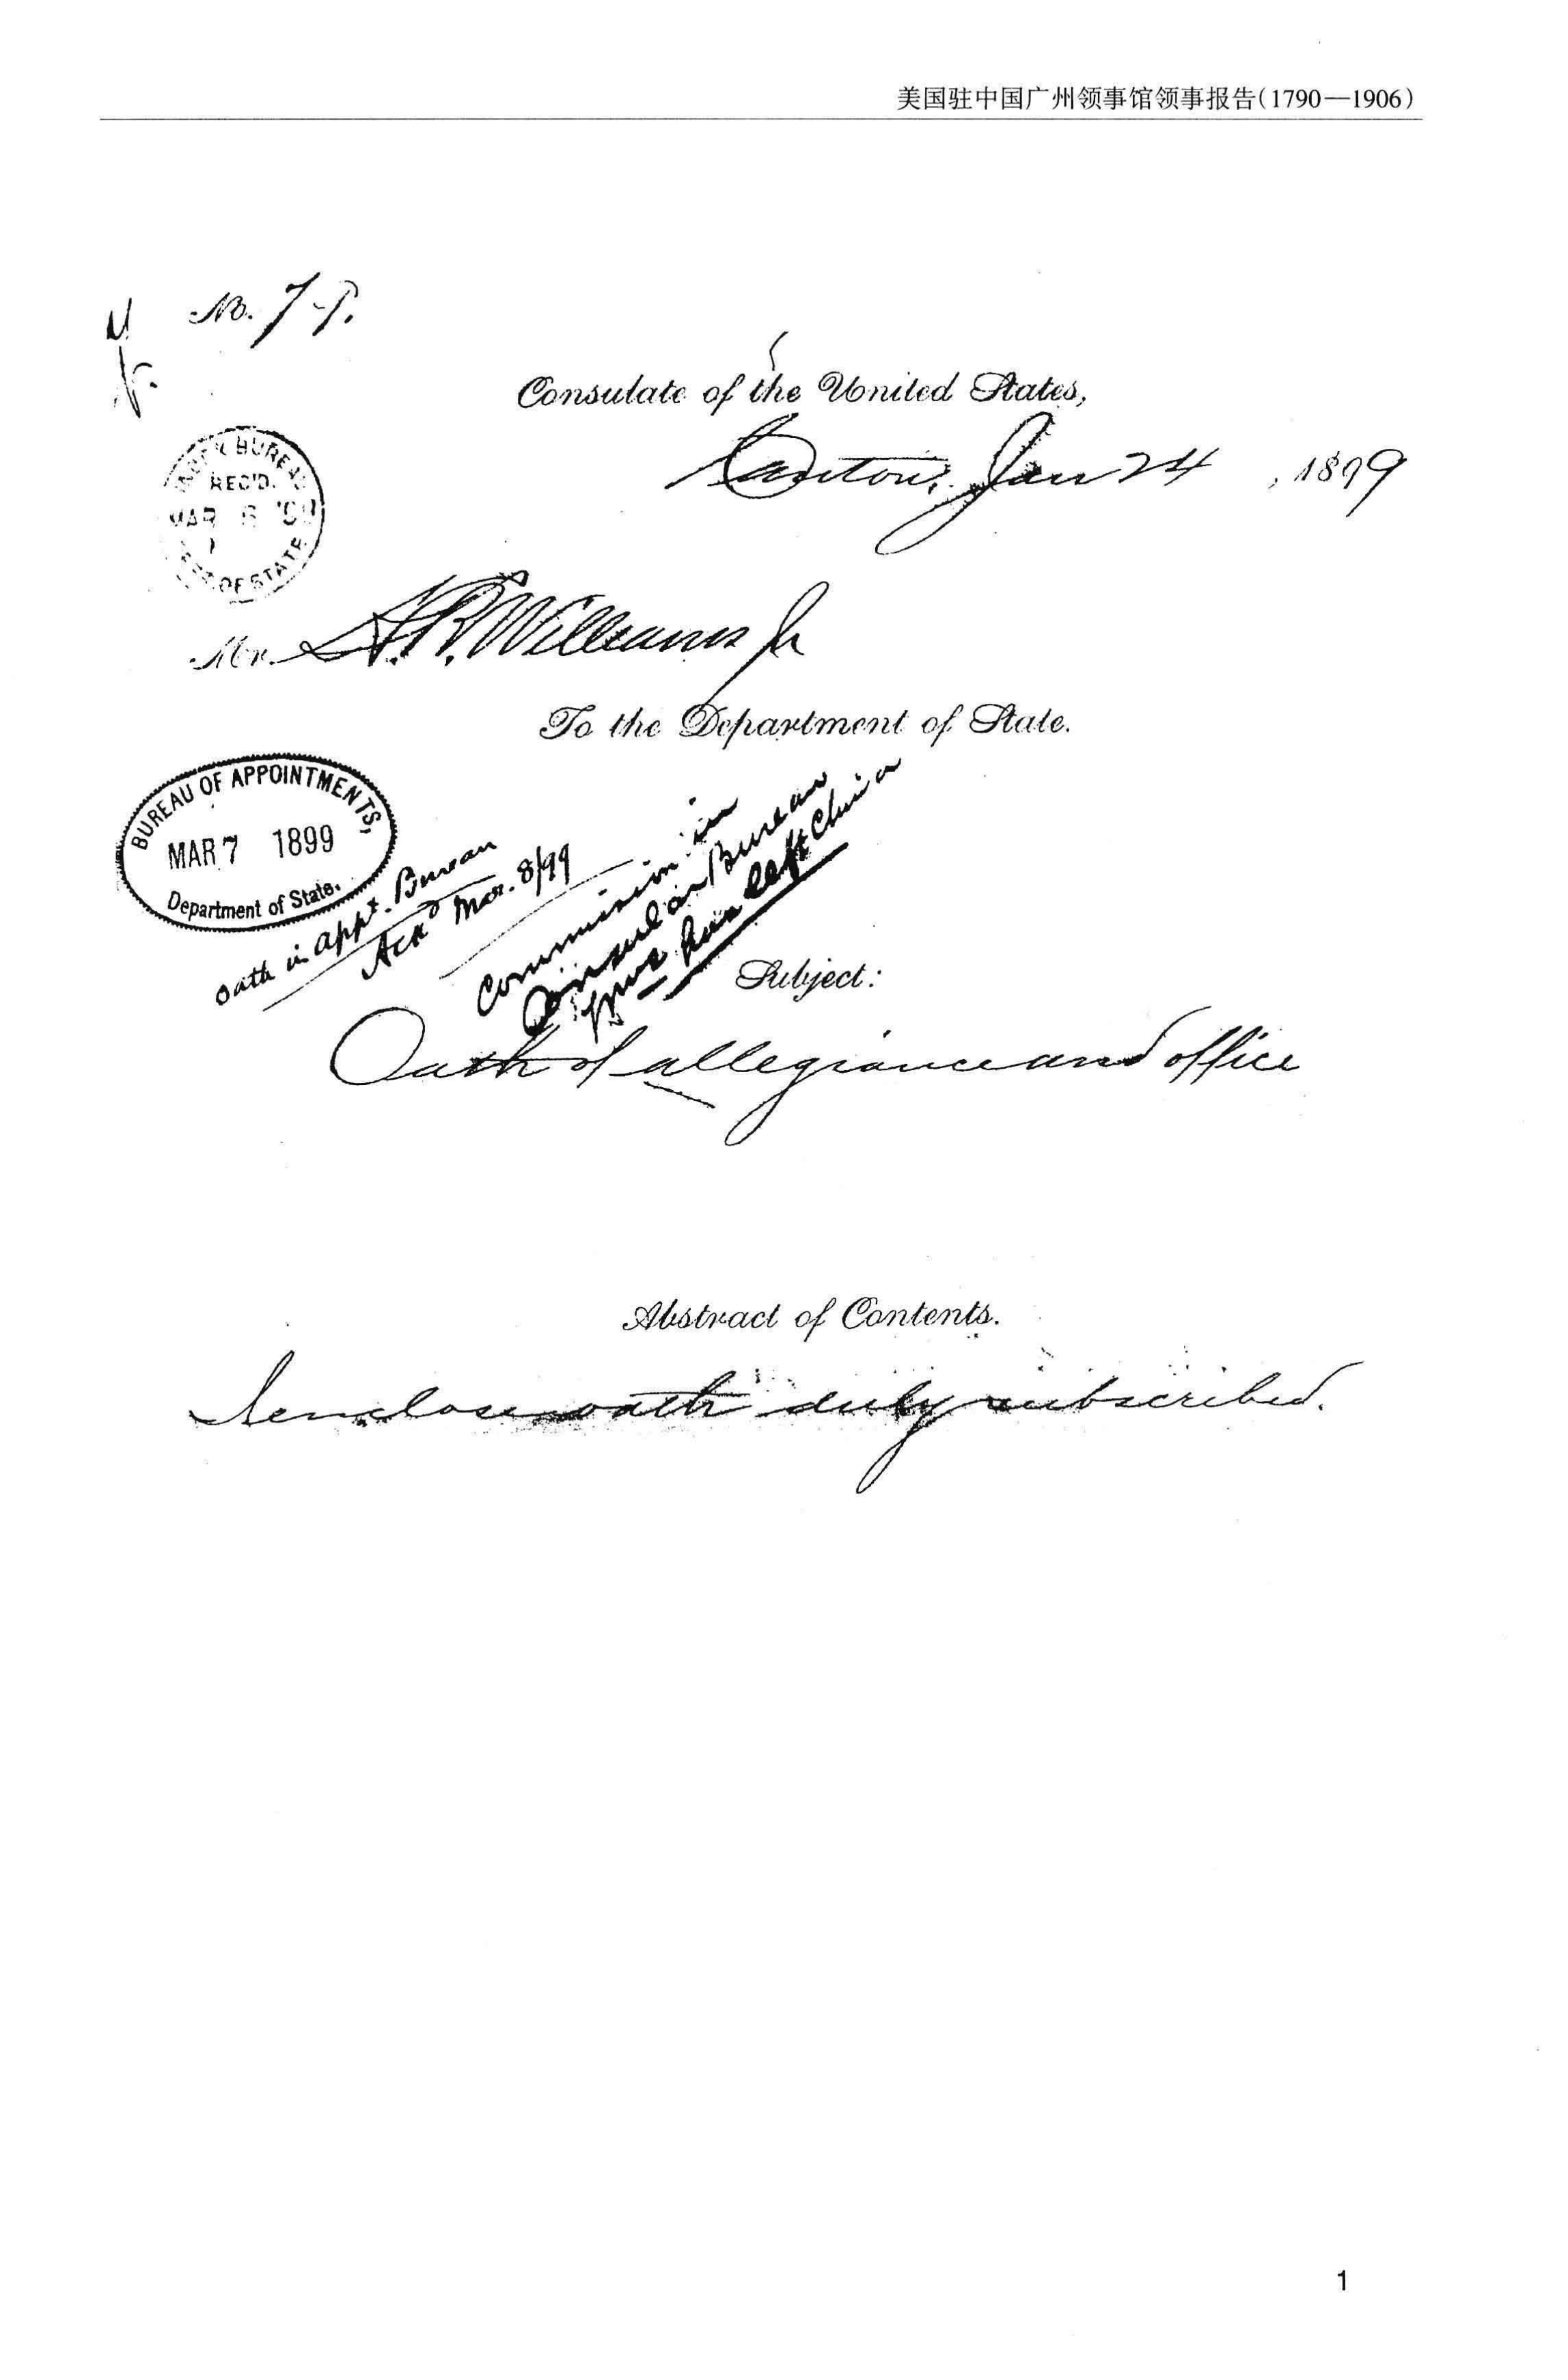 美国驻中国广州领事馆领事报告(1790—1906)
No. 7
Consulate of the United States,
Canton, Jan 24, 1899
BUREAU
REC'D.
MAR 6
OF STATE
Mr. A. R. Williams Jr
To the Department of State.
BUREAU OF APPOINTMENTS,
MAR 7 1899
Department of State.
Oath in appt. Bureau
Ackd Mar. 8/99
Commission in
Consular Bureau
has left China
Subject:
Oath of allegiance and office
Abstract of Contents.
I enclose oath duly subscribed.
1